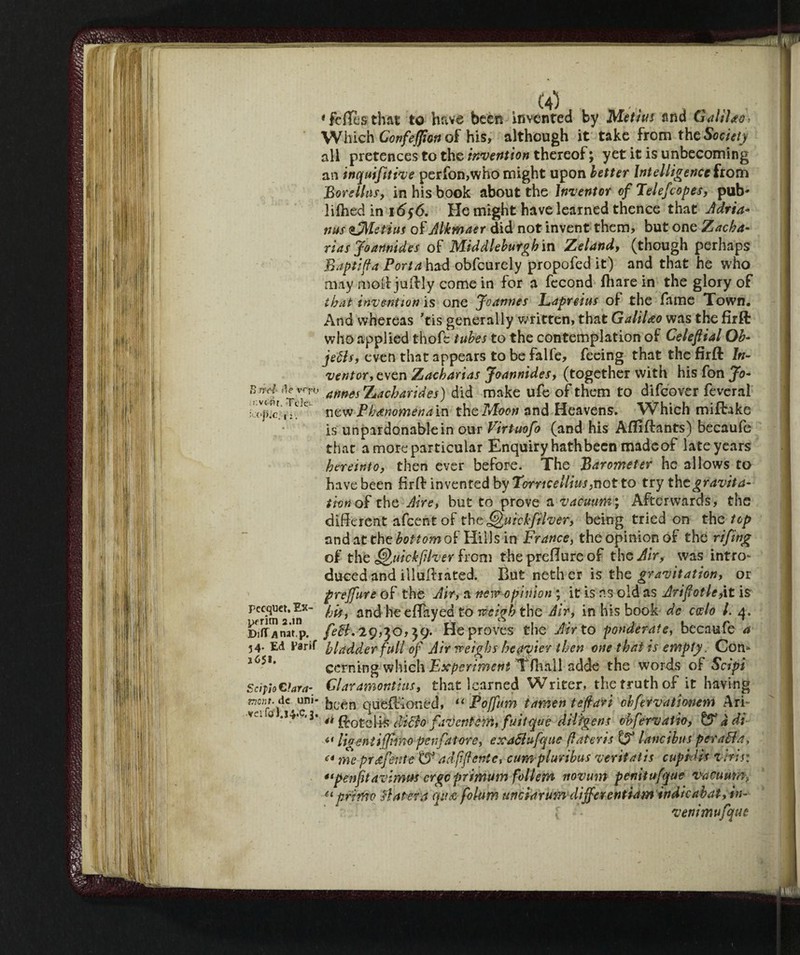 (4)
‘ feſſes that to have been invented by Metius and Galilæo.
Which Confeſſion of his, although it take from the Society
all pretences to the invention thereof; yet it is unbecoming
an inquiſitive perſon, who might upon better Intelligence from
Borellus, in his book about the Inventor of Teleſcopes, pub-
liſhed in 1656. He might have learned thence that Adria-
nus Metius of Alkmaer did not invent them, but one Zacha-
rias Joannides of Middleburgh in Zeland, (though perhaps
Baptiſta Porta had obſcurely propoſed it) and that he who
may moſt juſtly come in for a ſecond ſhare in the glory of
that invention is one Joannes Lapreius of the ſame Town.
And whereas 'tis generally written, that Galilæo was the firſt
who applied thoſe tubes to the contemplation of Celeſtial Ob-
jects, even that appears to be falſe, ſeeing that the firſt In-
ventor, even Zacharias Joannides, (together with his ſon Jo-
annes Zacharides) did make uſe of them to diſcover ſeveral
new Phænomena in the Moon and Heavens. Which miſtake
is unpardonable in our Virtuoſo (and his Aſſiſtants) becauſe
that a more particular Enquiry hath been made of late years
hereinto, then ever before. The Barometer he allows to
have been firſt invented by Torricellius, not to try the gravita-
tion of the Aire, but to prove a vacuum; Afterwards, the
different aſcent of the Quickſilver, being tried on the top
and at the bottom of Hills in France, the opinion of the riſing
of the Quickſilver from the preſſure of the Air, was intro-
duced and illuſtrated. But nether is the gravitation, or
preſſure of the Air, a new opinion; it is as old as Ariſtotle, it is
his, and he eſſayed to weigh the Air, in his book de cœlo l. 4.
ſect. 29, 30, 39. He proves the Air to ponderate, becauſe a
bladder full of Air weighs heavier then one that is empty. Con-
cerning which Experiment I ſhall adde the words of Scipi
Claramontius, that learned Writer, the truth of it having
been queſtioned, “ Poſſum tamen teſtari obſervationem Ari-
“ ſtotelis dicto faventem, fuitque diligens obſervatio, & à di-
“ ligentiſſimo penſatore, exactuſque ſtateris & lancibus peracta,
“ me præſente & adſiſtente, cum pluribus veritatis cupidis viris:
“ penſitavimus ergo primum follem novum penituſque vacuum,
“ primo ſtatera quæ ſolum unciarum differentiam indicabat, in-
venimuſque
Borel. de vero
Tele-
Pecquet. Ex-
perim 2. in
Diſſ Anat. p.
54. Ed Pariſ
1651.
Scipio Clara-
mont. de uni-
verſo l. 14. c. 3.